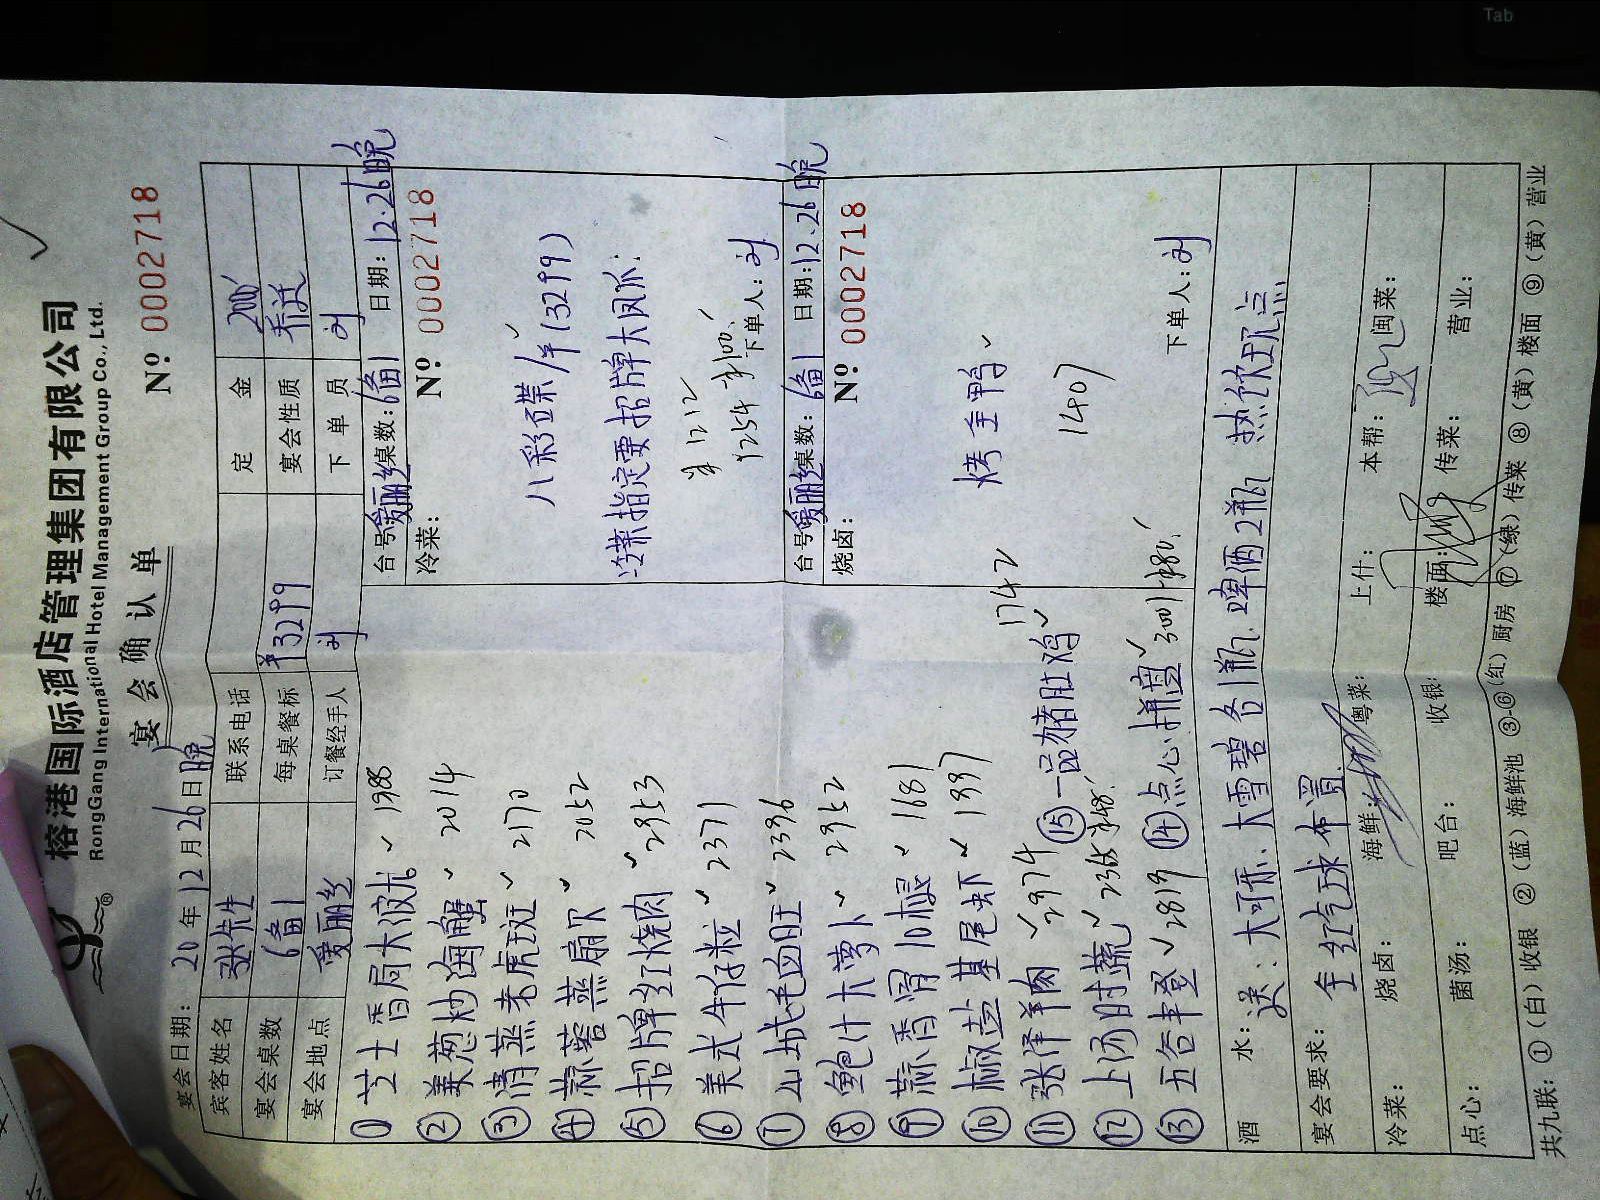 Tab
榕港国际酒店管理集团有限公司
RongGang International Hotel Management Group Co., Ltd.
®
宴会确认单
Nº: 0002718
宴会日期: 20 年 12 月 26 日 晚
宾客姓名 张先生 联系电话 定金 2000
宴会桌数 6备1 每桌餐标 ¥3299 宴会性质 乔迁
宴会地点 爱丽丝 订餐经手人 刘 下单员 刘
① 芝士香局大波龙 ✓ 1988
② 姜葱炒海蟹 ✓ 2014
③ 清蒸老虎斑 ✓ 2170
④ 蒜蓉蒸扇贝 ✓ 2052
⑤ 招牌红烧肉 ✓ 2953
⑥ 美式牛仔粒 ✓ 2371
⑦ 山城毛血旺 ✓ 2396
⑧ 鲍汁大萝卜 ✓ 2952
⑨ 蒜香骨10根 ✓ 1681
⑩ 椒盐基尾虾 ✓ 1937
⑪ 张泽羊肉 ✓ 2974
⑮ 一品猪肚鸡 ✓ 1742
⑫ 上汤时蔬 ✓
⑬ 五谷丰登 ✓ 2819
⑭ 点心拼盘 ✓
台号: 爱丽丝 桌数: 6备1 日期: 12.26晚
冷菜: Nº 0002718
八彩碟/羊 (3299) ✓
冷菜指定要招牌大凤爪:
1212
1254
下单人: 刘
台号: 爱丽丝 桌数: 6备1 日期: 12.26晚
烧卤: Nº 0002718
烤全鸭 ✓
1407
下单人: 刘
酒水: 送: 大可乐、大雪碧各1瓶. 啤酒2瓶 热饮现点
宴会要求: 全红气球布置
冷菜: 烧卤: 海鲜: 粤菜: 上什: 本帮: 闽菜:
点心: 菌汤: 吧台: 收银: 楼面: 传菜: 营业:
共九联: ①(白)收银 ②(蓝)海鲜池 ③-⑥(红)厨房 ⑦(绿)传菜 ⑧(黄)楼面 ⑨(黄)营业